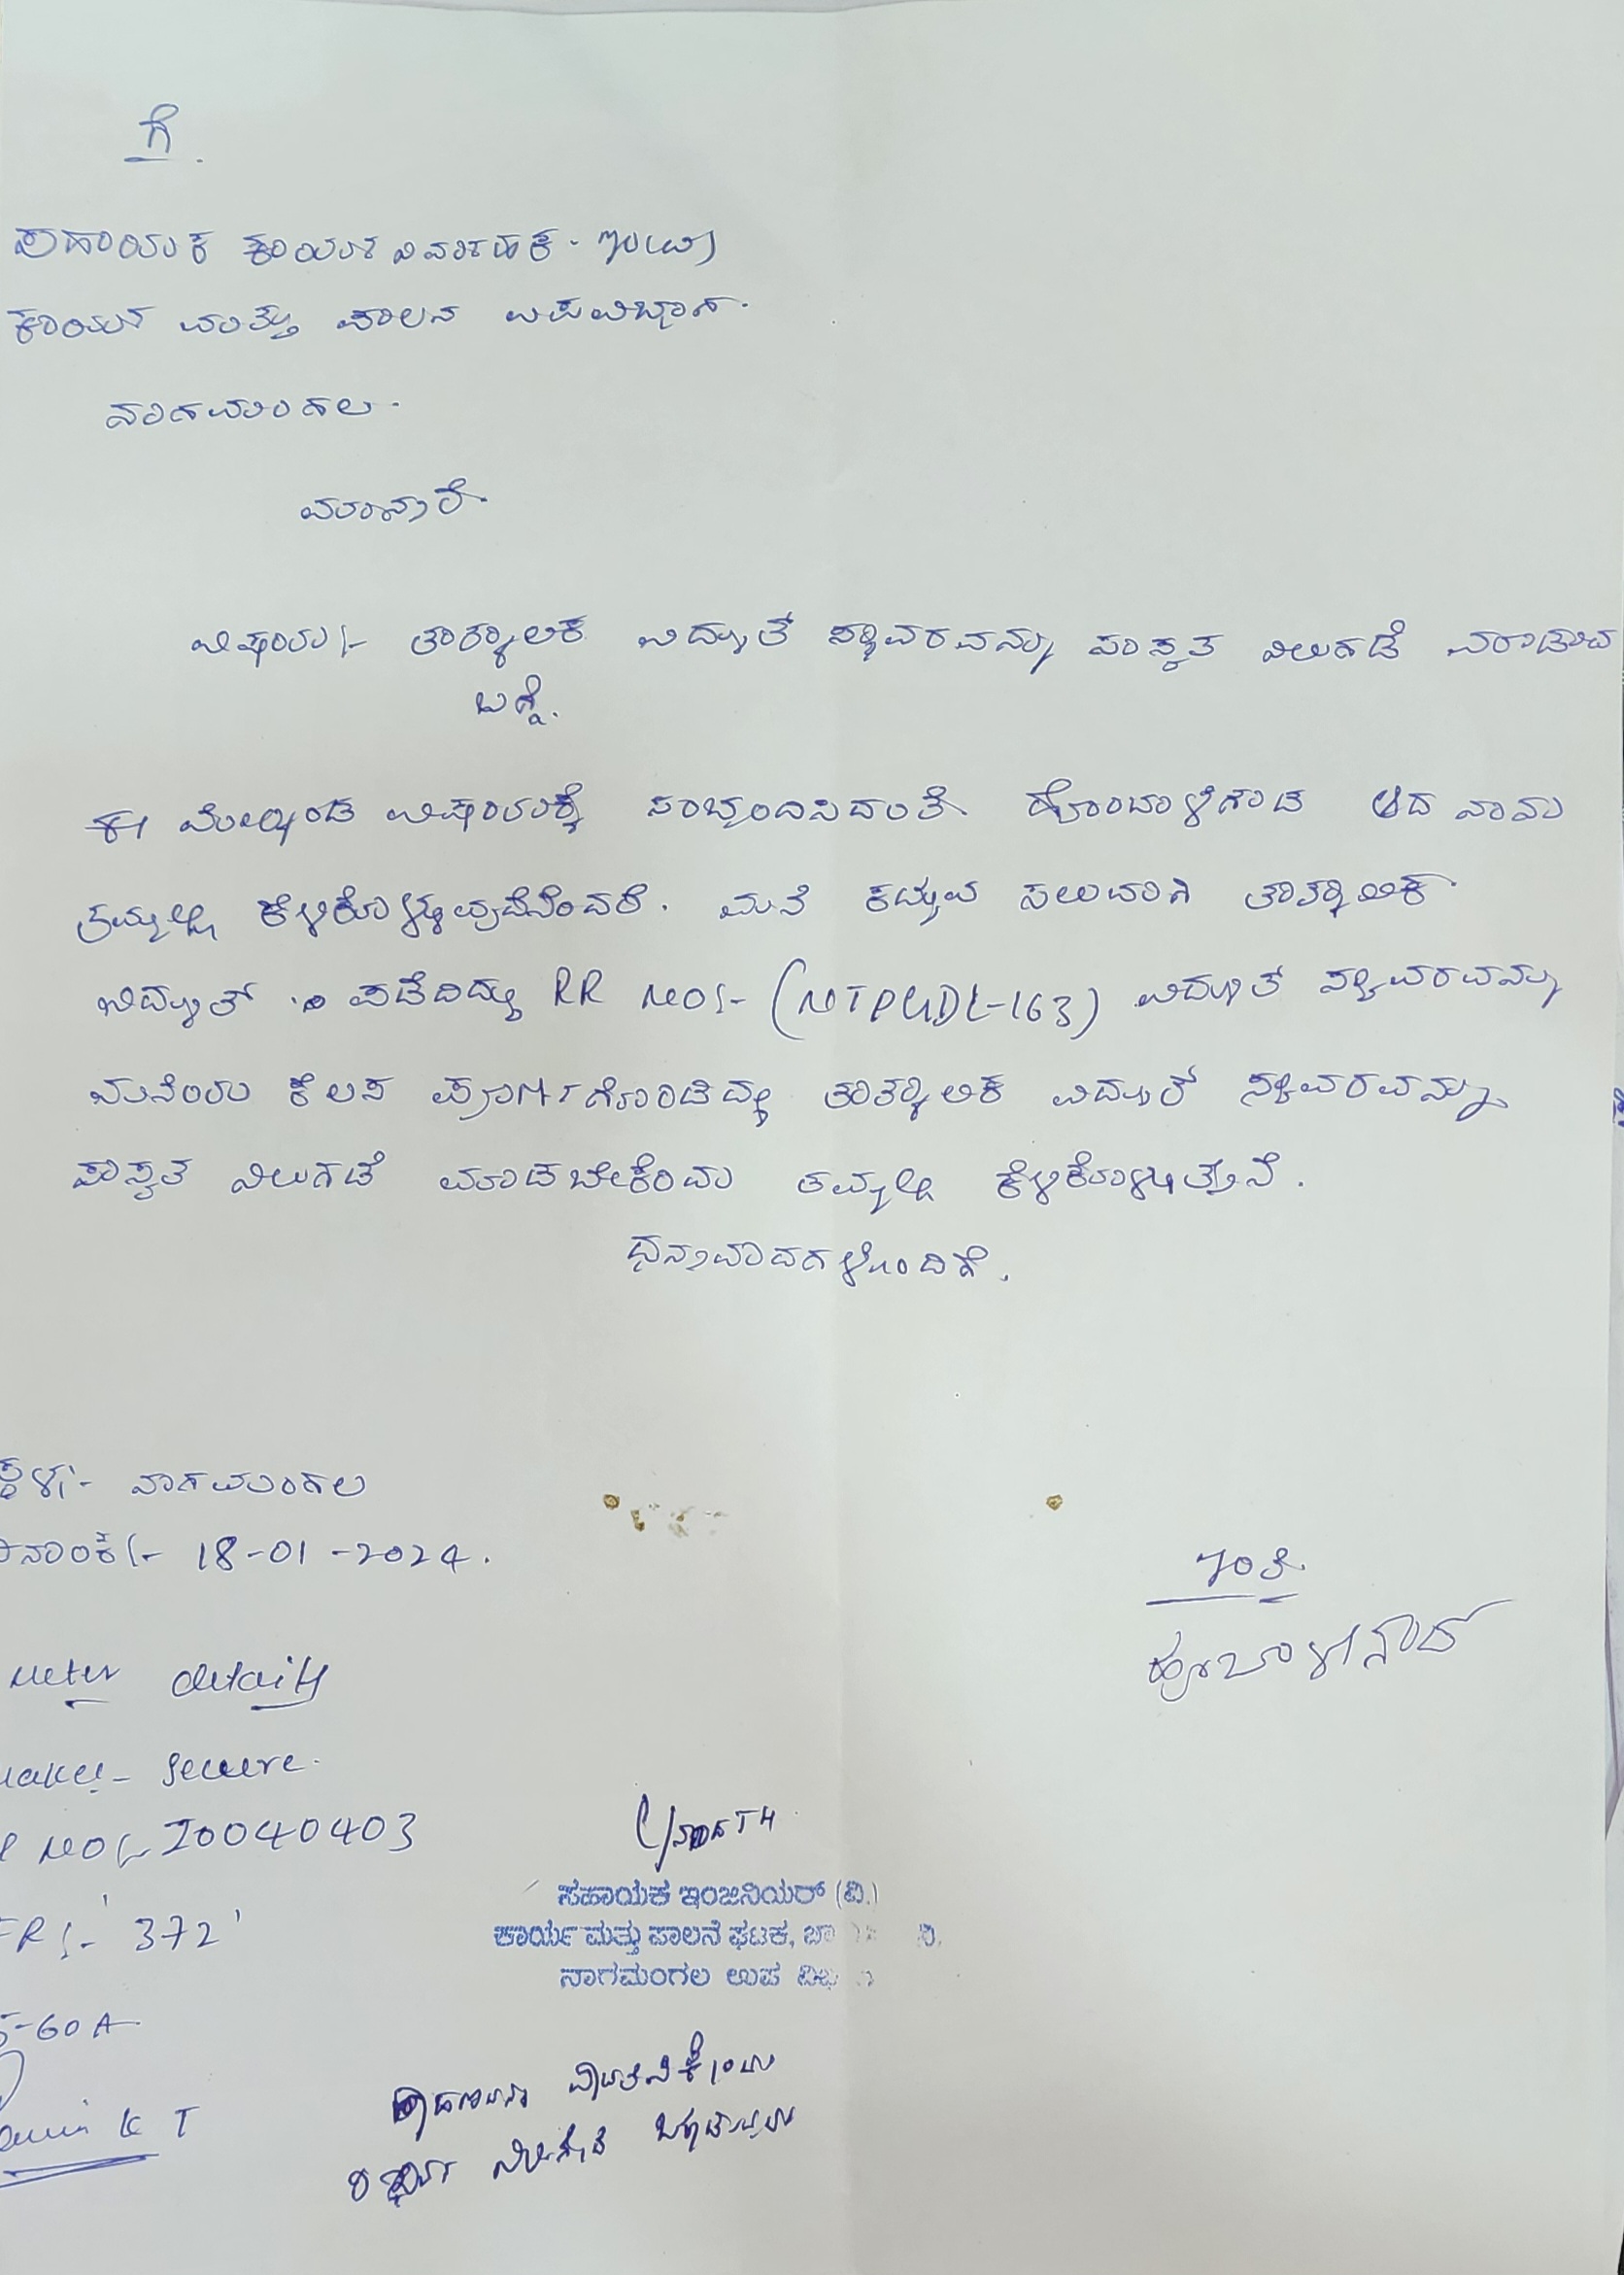 ಗೆ.
ಸಹಾಯಕ ಕಾರ್ಯ ನಿರ್ವಾಹಕ ಇಂ(ವಿ)
ಕಾರ್ಯ ಮತ್ತು ಪಾಲನ ಉಪವಿಭಾಗ.
ನಾಗಮಂಗಲ.
ಮಾನ್ಯರೆ.
ವಿಷಯ:- ತಾತ್ಕಾಲಿಕ ವಿದ್ಯುತ್ ಸ್ಥಾವರವನ್ನು ಶಾಸ್ವತ ನಿಲುಗಡೆ ಮಾಡುವ
ಬಗ್ಗೆ.
ಈ ಮೇಲ್ಕಂಡ ವಿಷಯಕ್ಕೆ ಸಂಬ್ಧಂದಿಸಿದಂತೆ ಹೊಂಬಾಳೆಗೌಡ ಆದ ನಾನು
ತಮ್ಮಲ್ಲಿ ಕೆಳಿಕೊಳ್ಳುವುದೆನೆಂದರೆ. ಮನೆ ಕಟ್ಟುವ ಸಲುವಾಗಿ ತಾತ್ಕಾಲಿಕ
ವಿದ್ಯುತ್ ಪಡೆದಿದ್ದು RR NO:- (NTPUDL-163) ವಿದ್ಯುತ್ ಸ್ಥಾವರವನ್ನು
ಮನೆಯ ಕೆಲಸ ಪೂರ್ಣಗೊಂಡಿದ್ದು ತಾತ್ಕಾಲಿಕ ವಿದ್ಯುತ್ ಸ್ಥಾವರವನ್ನು
ಶಾಸ್ವತ ನಿಲುಗಡೆ ಮಾಡಬೇಕೆಂದು ತಮ್ಮಲ್ಲಿ ಕೆಳಿಕೊಳ್ಳುತ್ತೆನೆ.
ಧನ್ಯವಾದಗಳೊಂದಿಗೆ.
ಸ್ಥಳ:- ನಾಗಮಂಗಲ
ದಿನಾಂಕ:- 18-01-2024.
ಇಂತಿ
Meter details
Make:- Secure.
NO:- I0040403
FR:- '372'
5-60A
K T
ಸಹಾಯಕ ಇಂಜಿನಿಯರ್ (ವಿ.)
ಕಾರ್ಯ ಮತ್ತು ಪಾಲನೆ ಘಟಕ,
ನಾಗಮಂಗಲ ಉಪ